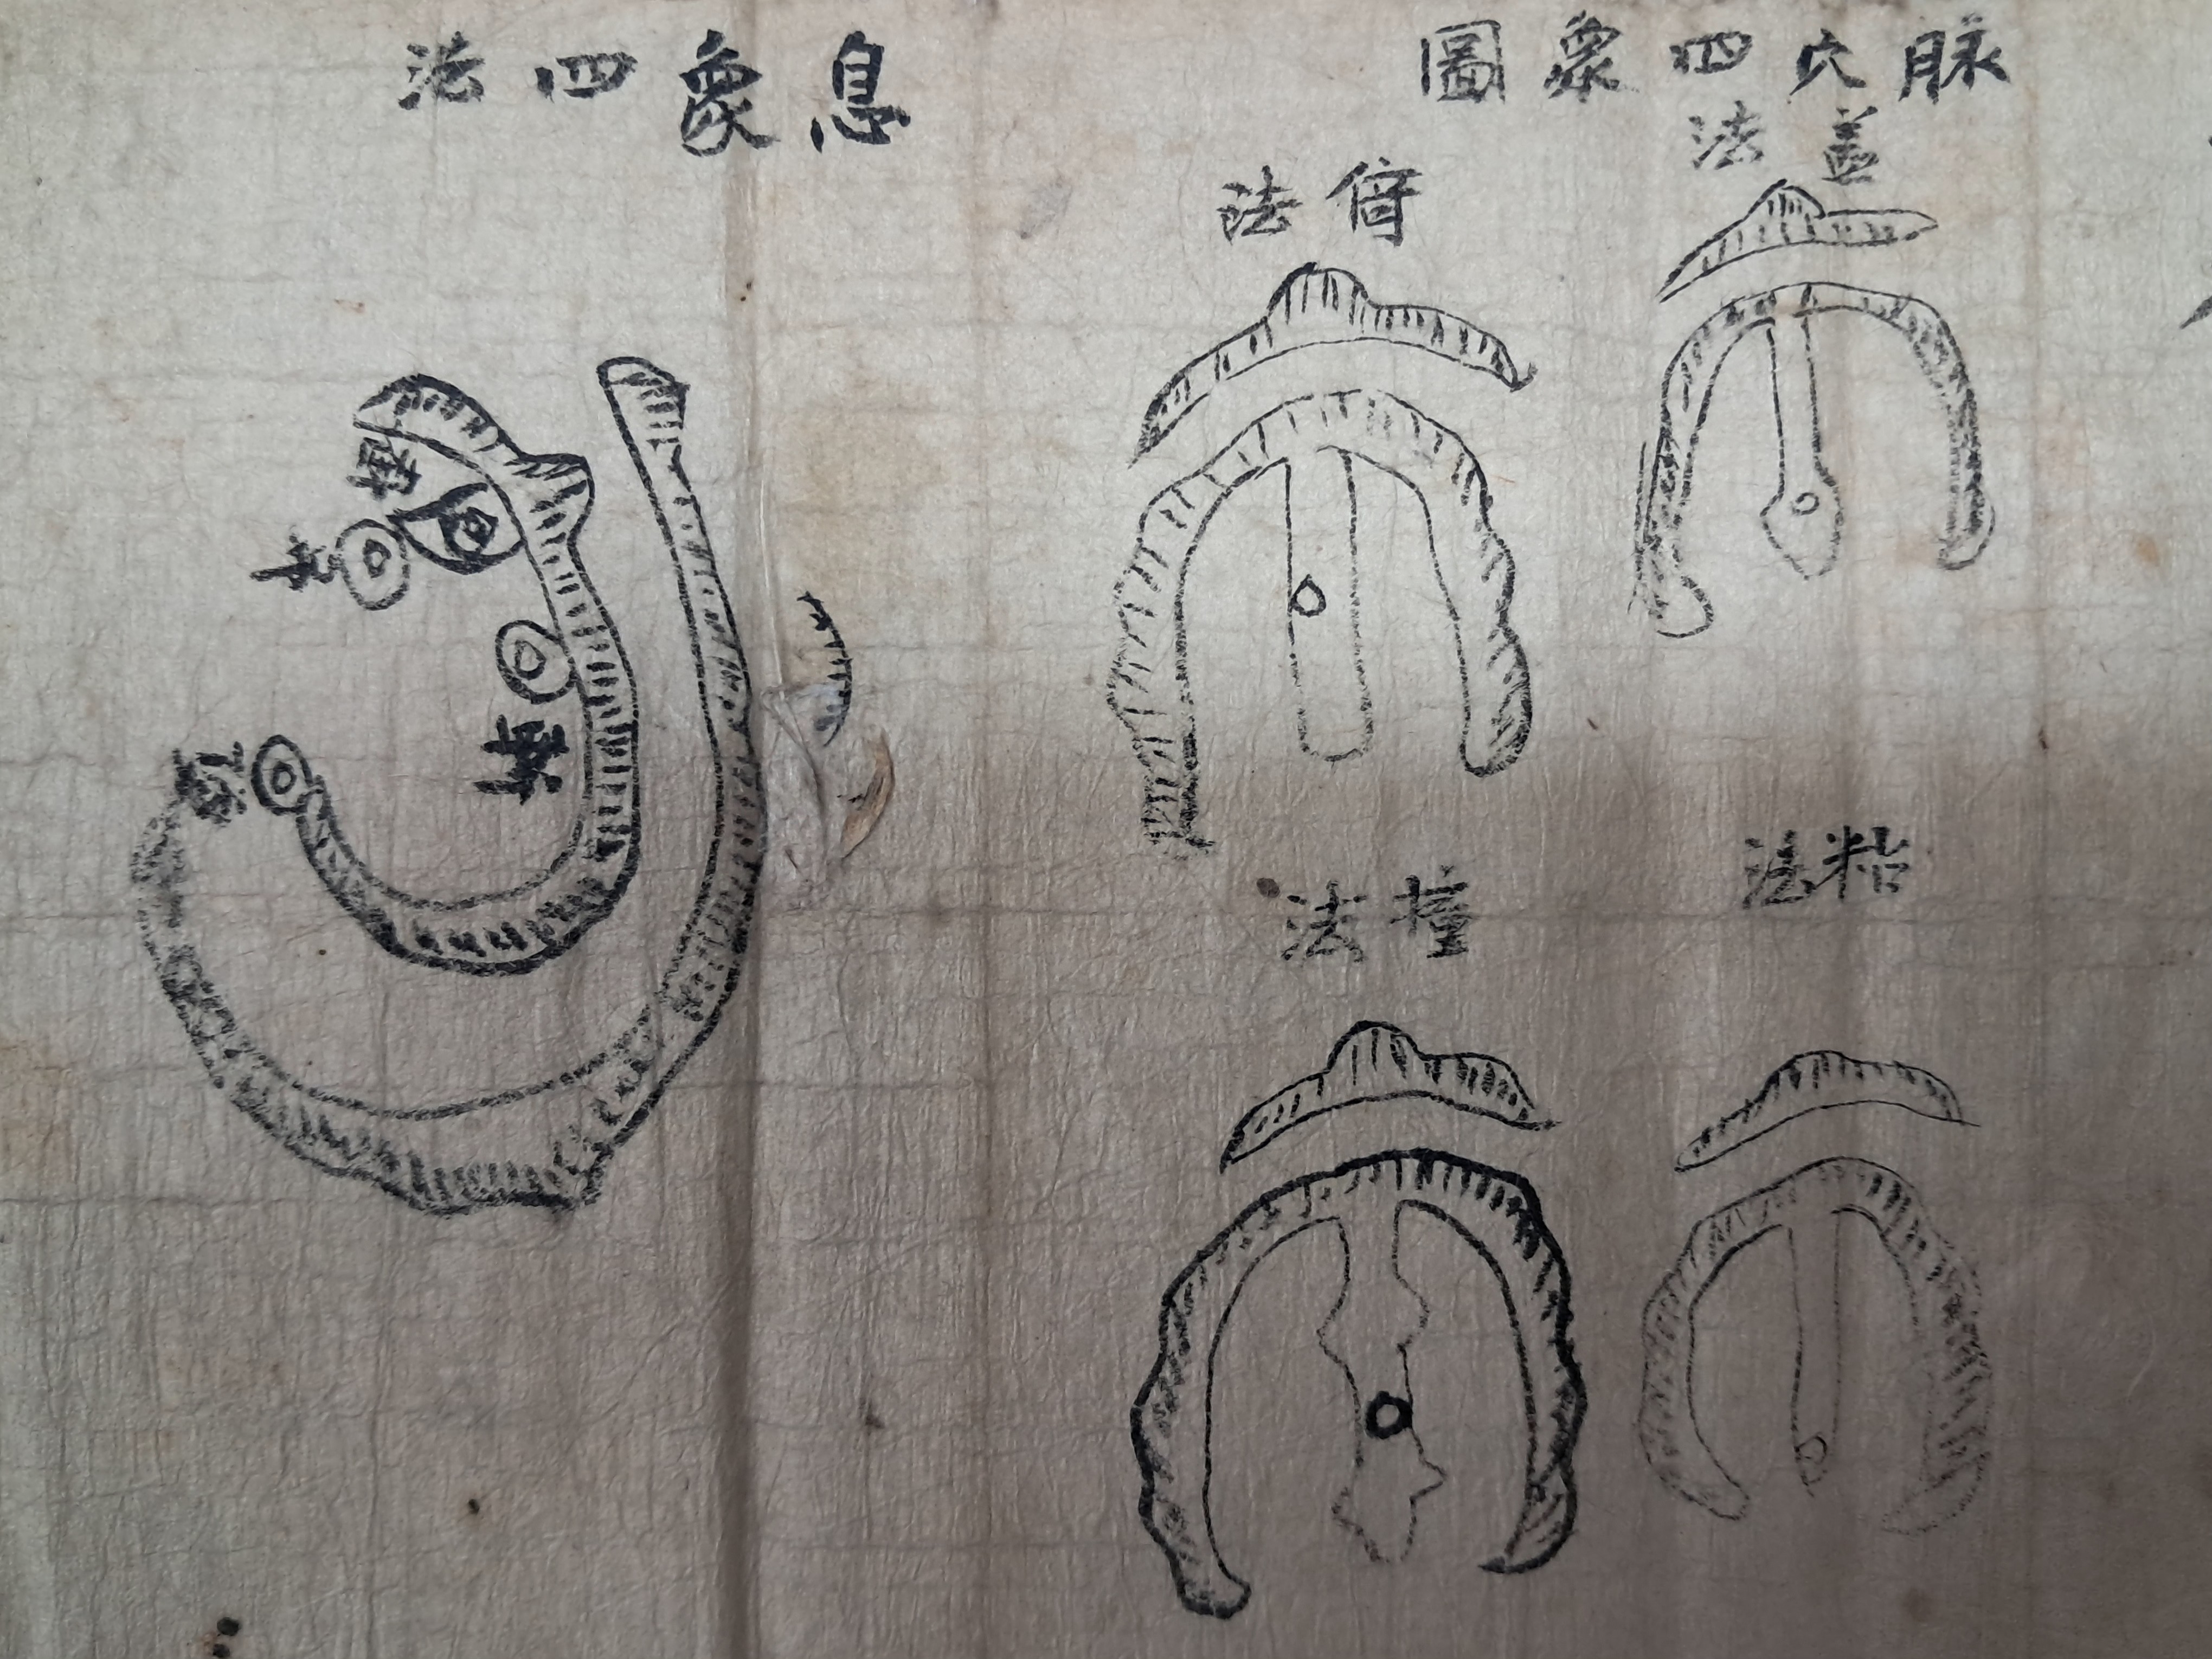 脉穴四象圖
盖法
倚法
粘法
撞法
息象四法